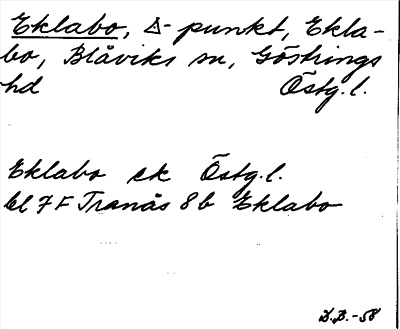 Eklabo, △-punkt, Ekla-
bo, Blåviks sn, Göstrings
hd Östg.l.
Eklabo ek Östg.l.
bl 7 F Tranås 8b Eklabo
B.-58